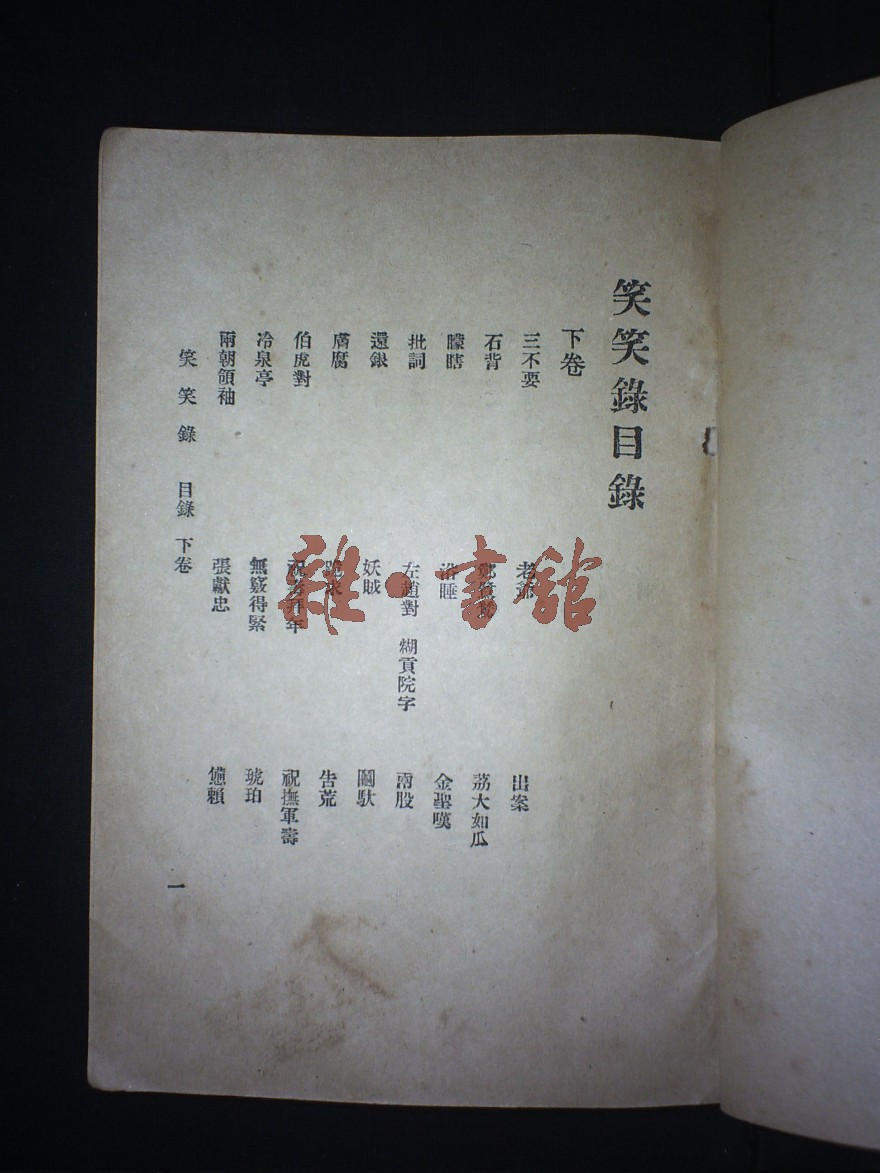 笑笑錄目錄
下卷
三不要 老爺 出案
石背 荔大如瓜
矇瞎 浴睡 金聖嘆
批詞 左趙對 糊貢院字 兩股
還銀 妖賊 闖馱
膚腐 告荒
伯虎對 祝壽拜年 祝撫軍壽
冷泉亭 無竅得緊 琥珀
兩朝領袖 張獻忠 憊賴
笑笑錄 目錄 下卷 一
雜·書館